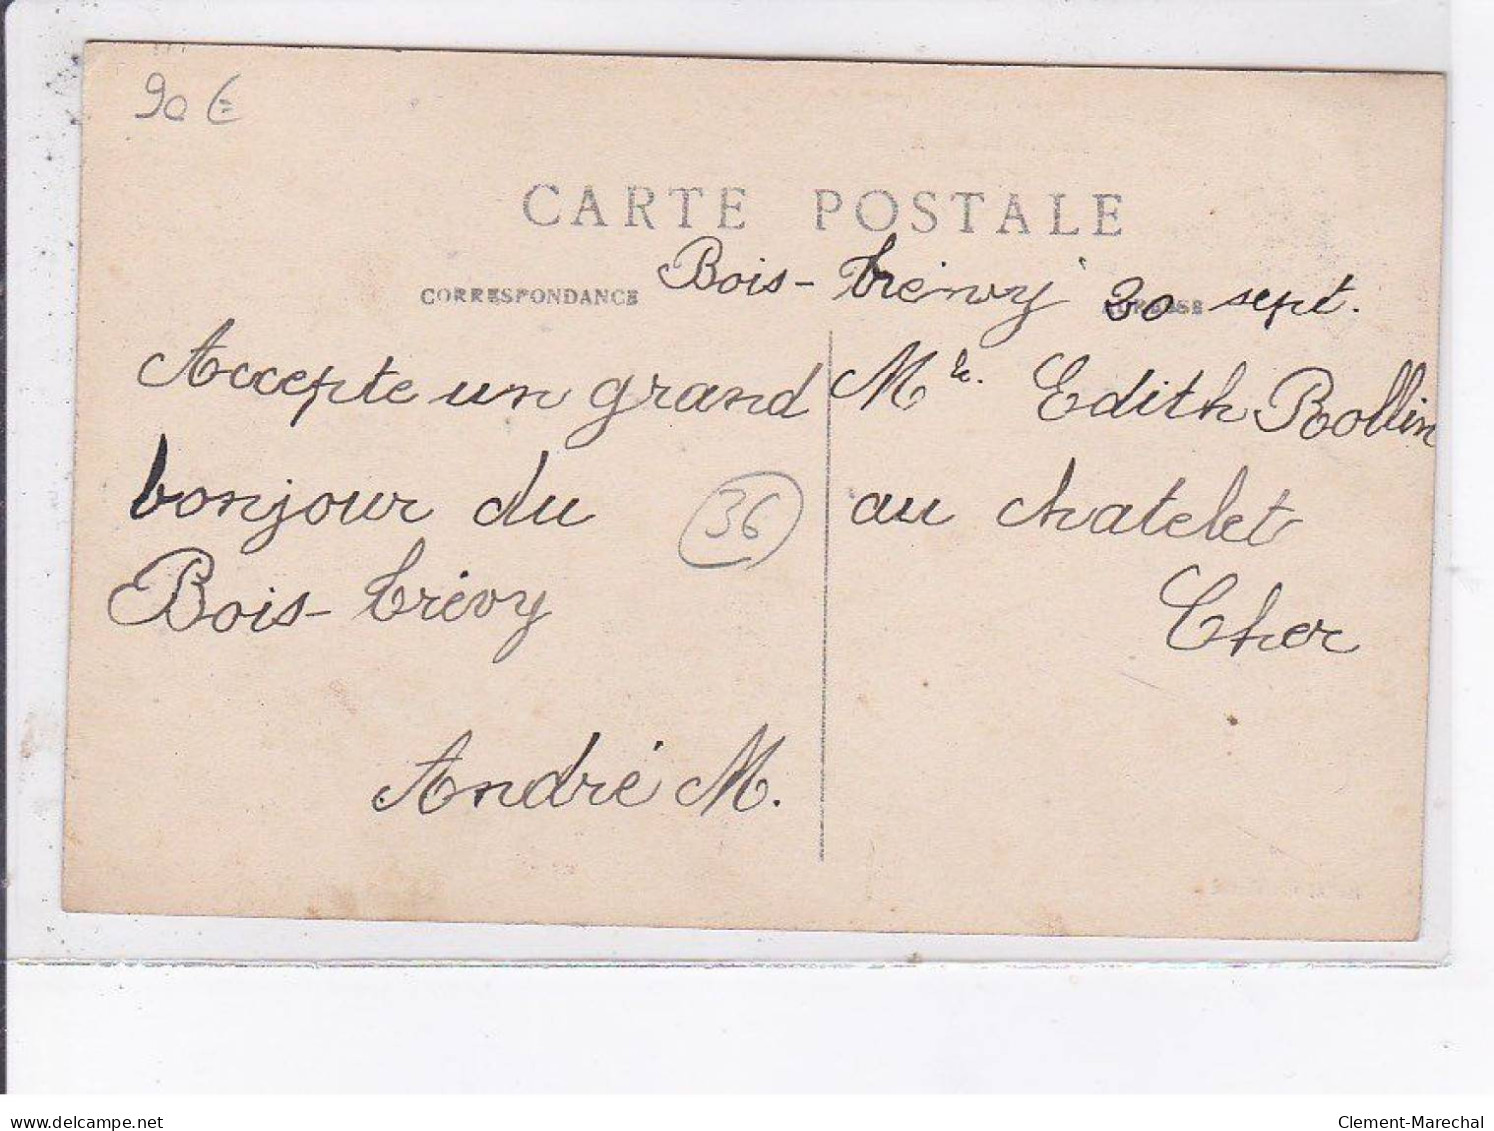 90 €
CARTE POSTALE
CORRESPONDANCE
ADRESSE
Bois-trémy 30 sept.
Accepte un grand
bonjour du
Bois-trévy
André M.
36
Mle. Edith Rollin
au chatelet
Cher
delcampe.net
Clement-Marechal